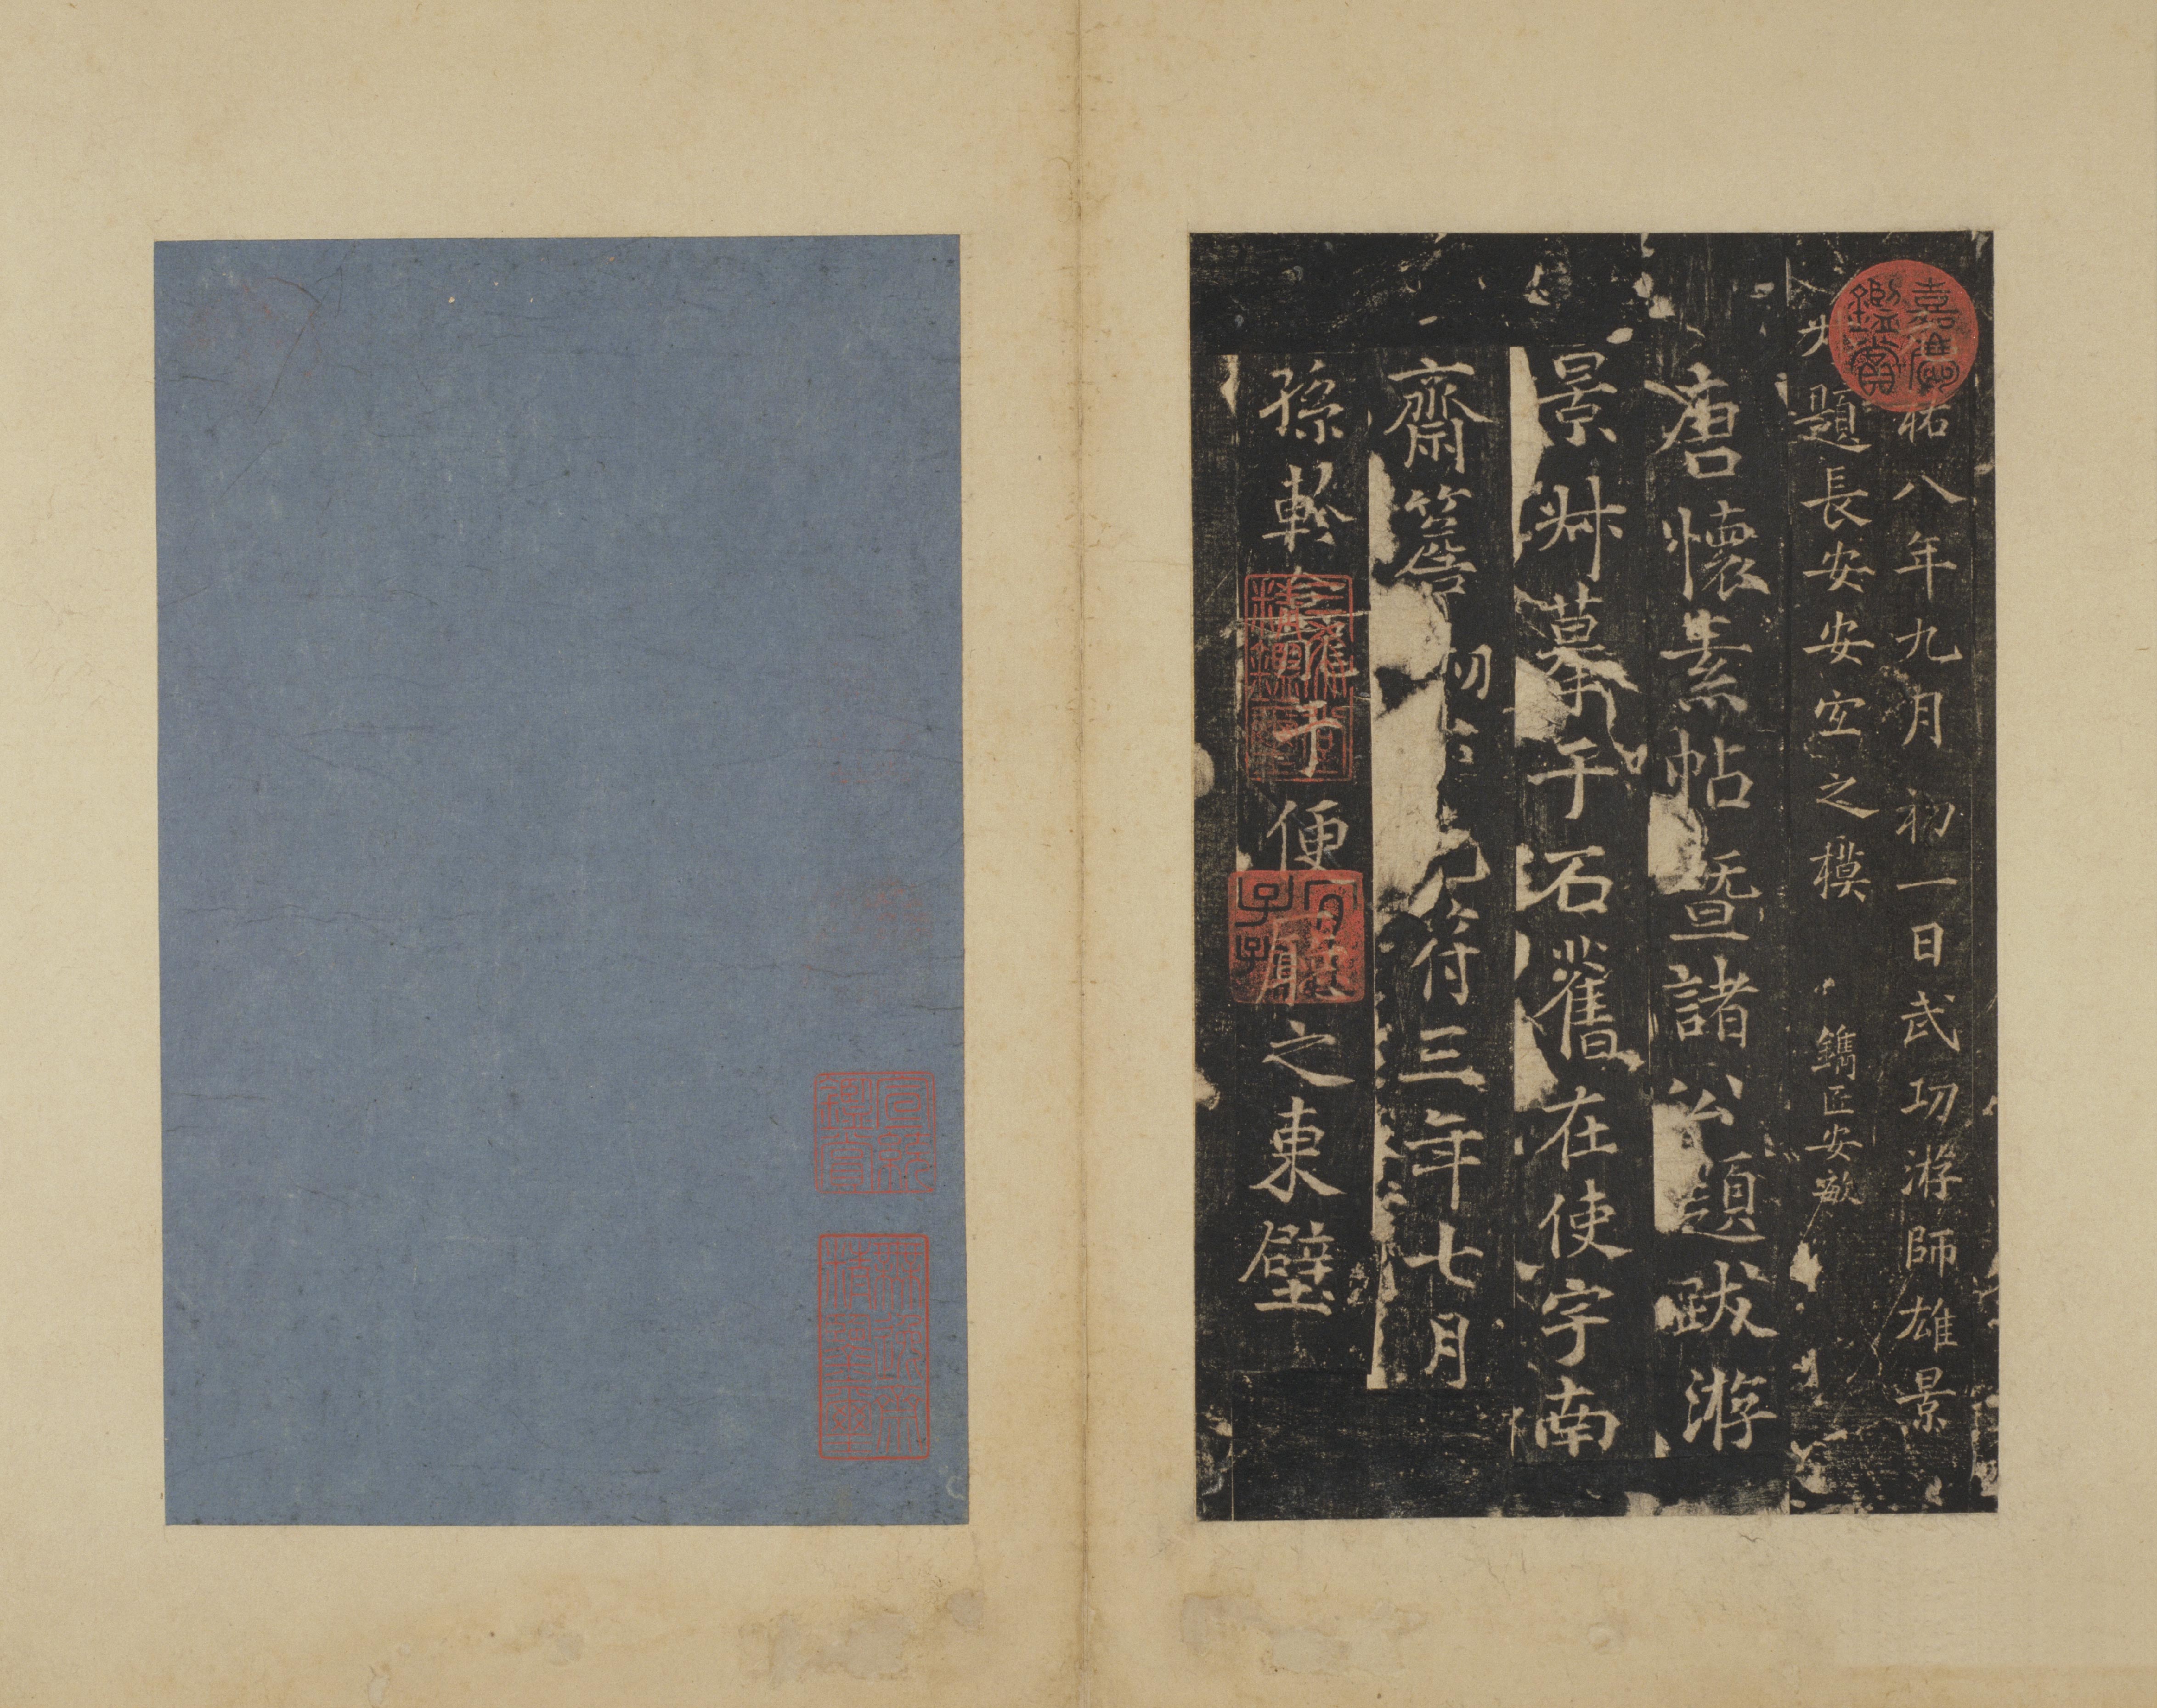 祐八年九月初一日武功游師雄景
叔題長安安宜之模 鐫匠安敏
唐懷素帖暨諸公題跋游
景叔摹于石舊在使字南
齋簷 符三年七月
孫軫 于便廳之東壁
嘉
鑑賞
宜
子孫
三希堂
精鑑璽